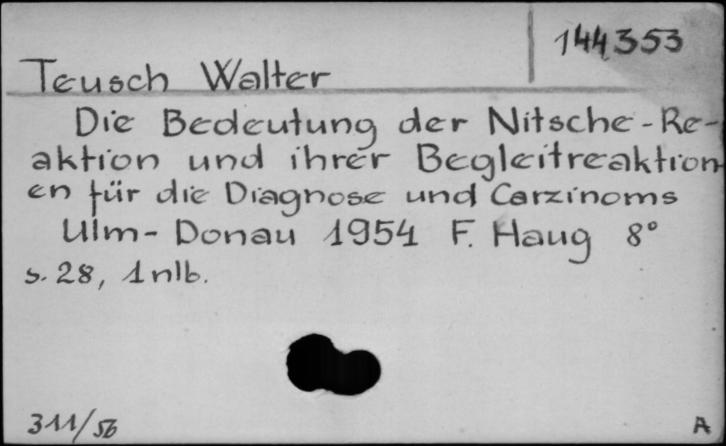 144353
Teusch Walter
Die Bedeutung der Nitsche-Re-
aktion und ihrer Begleitreaktion
en für die Diagnose und Carzinoms
Ulm-Donau 1954 F. Haug 8°
s. 28, 1 nlb.
311/56
A